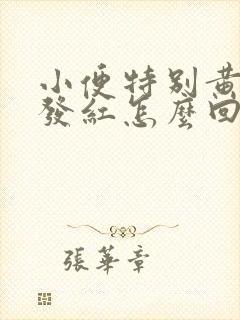 小便特别黃
發紅怎麼回
張華章